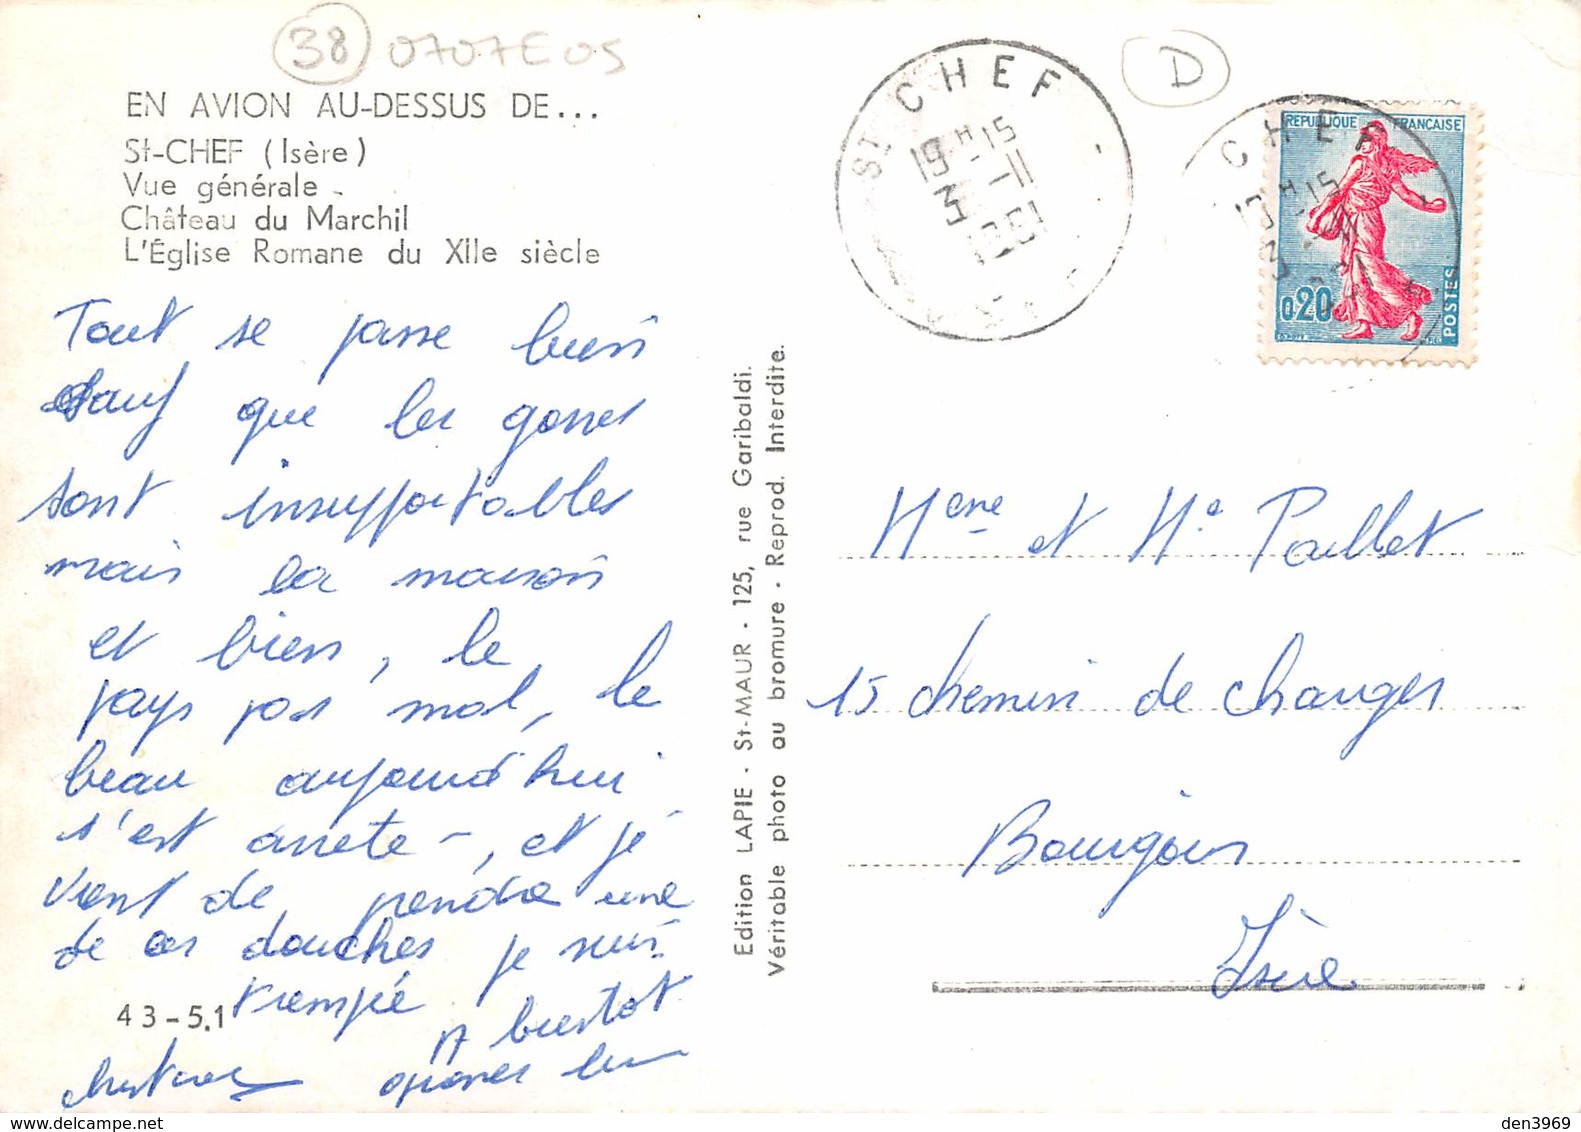 38 0707E05
D
EN AVION AU-DESSUS DE...
St-CHEF (Isère)
Vue générale -
Château du Marchil
L'Église Romane du XIIe siècle
Tout se passe bien
sauf que les gosses
sont insupportables
mais la maison
et bien, le
pays pas mal, le
beau aujourd'hui
s'est arrete -, et je
vient de prendre une
de ces douches je suis
trempé
43-5.1
A bientot
Edition LAPIE - St-MAUR - 125, rue Garibaldi.
Véritable photo au bromure - Reprod. Interdite.
ST CHEF
19 H 15
3 -11
1961
REPUBLIQUE FRANÇAISE
0,20
POSTES
CHEF
Mme et Mr Paillet
15 chemin de Changes
Bourgoin
Isère
den3969